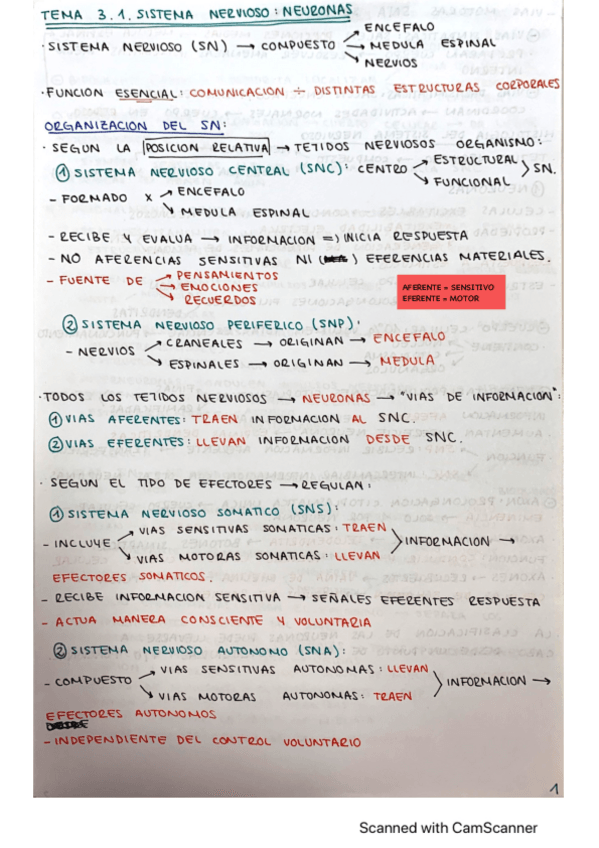 TEMA 3.1. SISTEMA NERVIOSO: NEURONAS
· SISTEMA NERVIOSO (SN) → COMPUESTO → ENCEFALO
→ MEDULA ESPINAL
→ NERVIOS
· FUNCION ESENCIAL: COMUNICACION ÷ DISTINTAS ESTRUCTURAS CORPORALES
ORGANIZACION DEL SN:
· SEGUN LA POSICION RELATIVA → TETIDOS NERVIOSOS ORGANISMO:
① SISTEMA NERVIOSO CENTRAL (SNC): CENTRO → ESTRUCTURAL
→ FUNCIONAL > SN.
- FORMADO X → ENCEFALO
→ MEDULA ESPINAL
- RECIBE Y EVALUA → INFORMACION => INICIA RESPUESTA
- NO AFERENCIAS SENSITIVAS NI ( ) EFERENCIAS MATERIALES.
- FUENTE DE → PENSAMIENTOS
→ EMOCIONES
→ RECUERDOS
AFERENTE = SENSITIVO
EFERENTE = MOTOR
② SISTEMA NERVIOSO PERIFERICO (SNP):
- NERVIOS → CRANEALES → ORIGINAN → ENCEFALO
→ ESPINALES → ORIGINAN → MEDULA
· TODOS LOS TETIDOS NERVIOSOS → NEURONAS → "VIAS DE INFORMACION":
① VIAS AFERENTES: TRAEN INFORMACION AL SNC.
② VIAS EFERENTES: LLEVAN INFORMACION DESDE SNC.
· SEGUN EL TIDO DE EFECTORES → REGULAN:
① SISTEMA NERVIOSO SOMATICO (SNS):
- INCLUYE → VIAS SENSITIVAS SOMATICAS: TRAEN
→ VIAS MOTORAS SOMATICAS: LLEVAN > INFORMACION →
EFECTORES SOMATICOS.
- RECIBE INFORMACION SENSITIVA → SEÑALES EFERENTES RESPUESTA
- ACTUA MANERA CONSCIENTE Y VOLUNTARIA
② SISTEMA NERVIOSO AUTONOMO (SNA):
- COMPUESTO → VIAS SENSITIVAS AUTONOMAS: LLEVAN
→ VIAS MOTORAS AUTONOMAS: TRAEN > INFORMACION →
EFECTORES AUTONOMOS
- INDEPENDIENTE DEL CONTROL VOLUNTARIO
1
Scanned with CamScanner